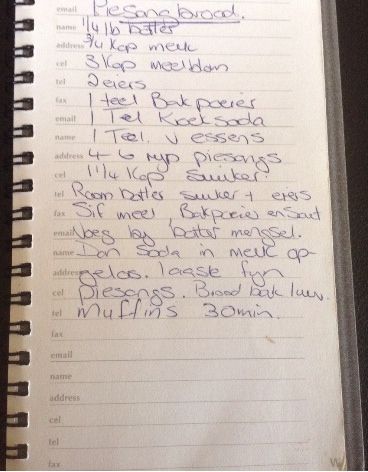 email Piesang brood.
name 1/4 lb botter
address 3/4 kop melk
cel 3 kop meelblom
tel 2 eiers
fax 1 teel Bakpoeier
email 1 Tel Koeksoda
name 1 Teel. V essens
address 4-6 ryp piesangs
cel 1 1/4 kop suiker.
tel Room botter suiker + eiers
fax Sif meel, Bakpoeier en Sout
email Voeg by botter mengsel.
name Dan Soda in melk op-
address gelos. laaste fyn
cel piesangs. Brood bak 1 uur.
tel Muffins 30 min.
fax
email
name
address
cel
tel
fax